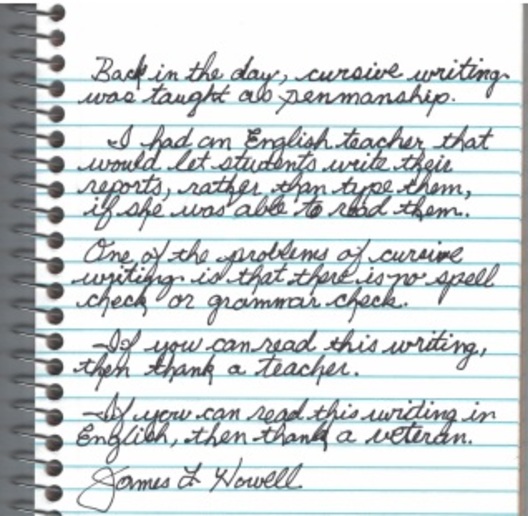 Back in the day, cursive writing
was taught as penmanship.
I had an English teacher that
would let students write their
reports, rather than type them,
if she was able to read them.
One of the problems of cursive
writing is that there is no spell
check or grammar check.
If you can read this writing,
then thank a teacher.
If you can read this writing in
English, then thank a veteran.
James L Howell